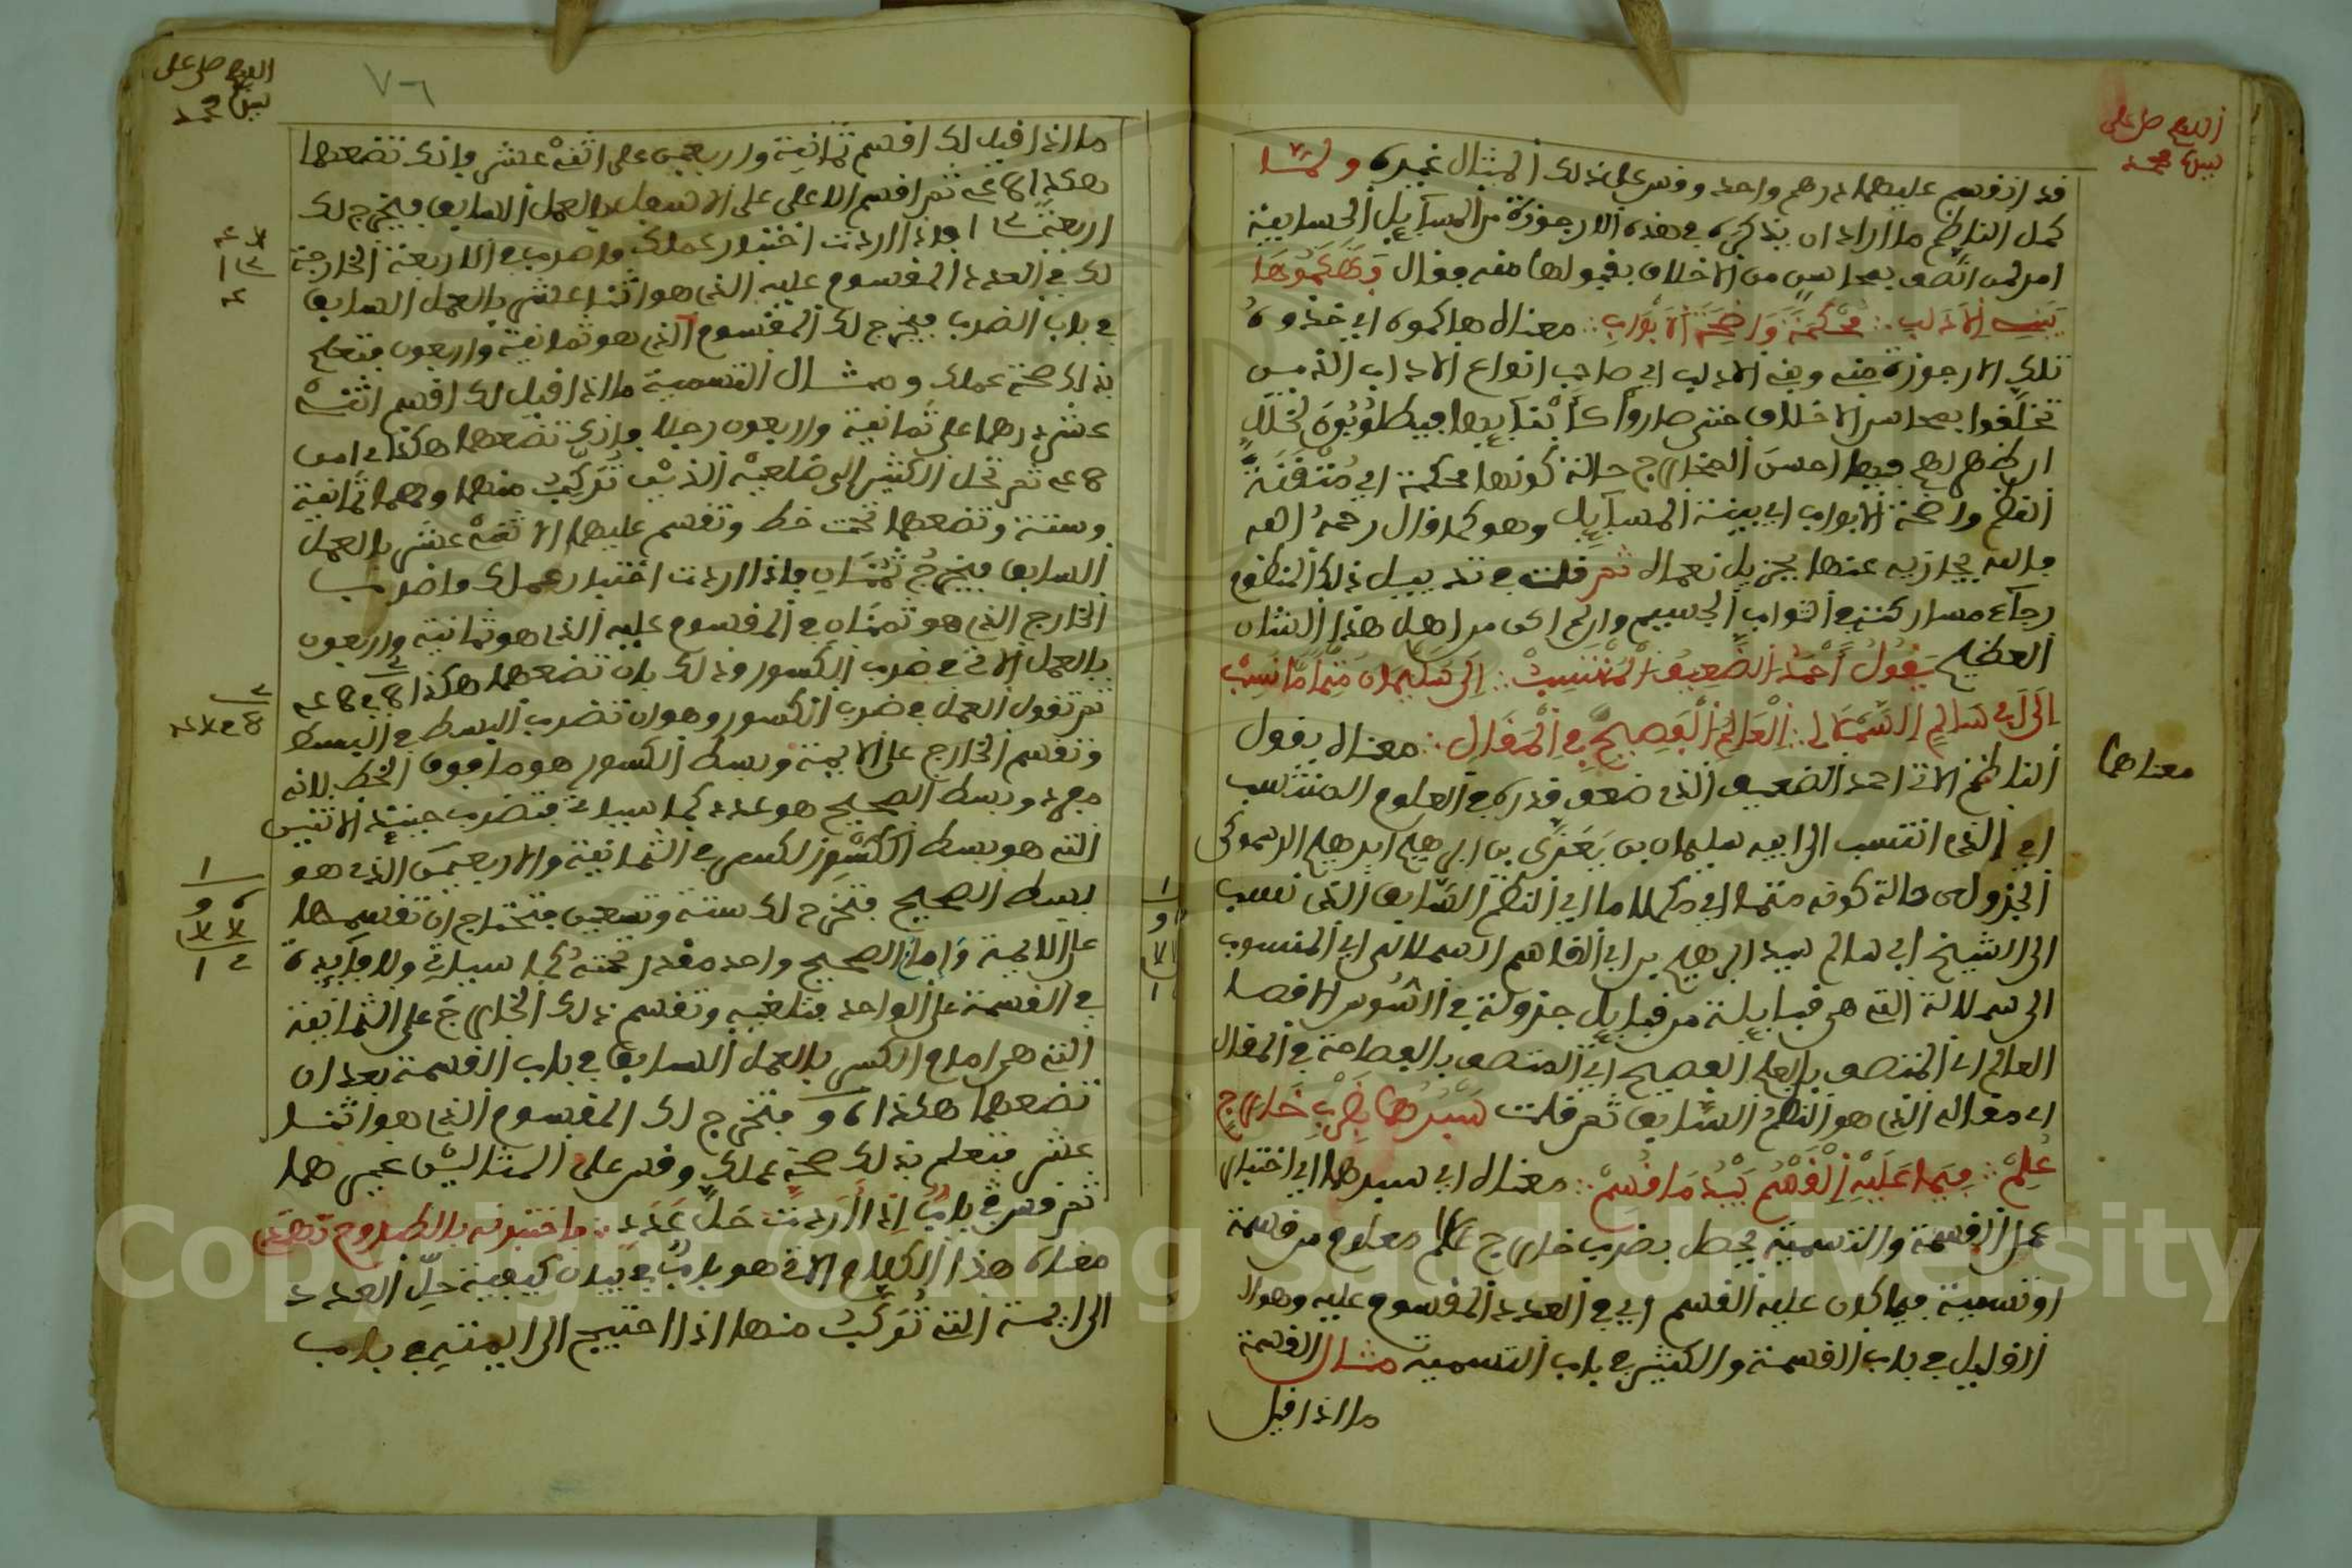 اللهم صل على
نبينا محمد
قد انقسم عليهما درهم واحد وقس على ذلك المثال غيره ولما
كمل الناظم ما اراد ان يذكره في هذه الارجوزة من المسايل الحسابية
امر لمن اتصف بمحاسن من الاخلاق بقبولها منه فقال وهاكموها
يبنيه الاداب ∴ محكمة واضحة الابواب ∴ معناه هاكموه اي خذوه
تلك الارجوزة منه وبنيه الاداب اي صاحب انواع الاداب الذين
تخلقوا بمحاسن الاخلاق حتى صاروا
احسن المخارج حالة كونها محكمة اي متقنة
النظم واضحة الابواب اي بينة المسايل وهو كما قال رحمه الله
والله يجازيه عنها بجزيل نعماه ثم قلت في تذييل ذلك المنظوم
رجاء مشاركته في الثواب الجسيم وان لم اكن من اهل هذا الشان
العظيم يقول احمد الضعيف المنتسب ∴ الى سليمان متمما نسب
الى ابي سالم السملالي ∴ العالم الفصيح في المقال ∴ معناه يقول
الناظم الاتي احمد الضعيف الذي ضعف قدره في العلوم المنتسب
اي الذي انتسب الى ابيه سليمان بن يعزى بن ابرهيم ابرهيم الرسموكي
الجزولي حالة كونه متمما اي مكملا ما اي النظم السابق الذي نسب
الى الشيخ ابي سالم سيد ابرهيم بن ابي القاسم السملالي اي المنسوب
الى سملالة التي هي قبايلة من قبايل جزولة في السوس الاقصا
العالم اي المتصف بالعلم الفصيح اي المتصف بالفصاحة في المقال
اي مقاله الذي هو النظم السابق ثم قلت سبرها بضرب خارج
علم ∴ فيما عليه القسم يبد ما قسم ∴ معناه اي سبرها اي اختبار
عمل القسمة والتسمية يحصل بضرب خارج علم معلوم من قسمة
او تسمية فيما كان عليه القسم اي في العدد المقسوم عليه وهو الا
القليل في باب القسمة والكثير في باب التسمية مثال القسمة
ما اذا قيل
معناها
اللهم صل على
نبينا محمد
٧٦
ما اذا قيل لك اقسم ثمانية واربعين على اثنى عشر فانك تضعها
هكذا ثم اقسم الاعلى على الاسفل بالعمل السابق فيخرج لك
اربعة فاذا اردت اختبار عملك فاضرب في الاربعة الخارجة
لك في العدد المقسوم عليه الذي هو اثنا عشر بالعمل السابق
في باب الضرب فيخرج لك المقسوم الذي هو ثمانية واربعون فتعلم
بذلك صحة عملك ومثال التسمية ما اذا قيل لك اقسم اثنى
عشر درهما على ثمانية واربعون رجلا فانك تضعها هكذا
ثم تحل الكثير الى ضلعيه الذين تركب منهما وهما ثمانية
وستة وتضعهما تحت خط وتقسم عليهما الاثنى عشر بالعمل
السابق فيخرج ثمنان فاذا اردت اختبار عملك فاضرب
الخارج الذي هو ثمنان في المقسوم عليه الذي هو ثمانية واربعون
بالعمل الاتي في ضرب الكسور وذلك بان تضعهما هكذا
ثم تقول العمل في ضرب الكسور وهو ان تضرب البسط في البسط
وتقسم الخارج على الايمة وبسط الكسور هو ما فوق الخط لانه
مفرد وبسط الصحيح هو عدده كما سياتي فتضرب حينئذ الاثنين
التي هو بسط الكسر في الثمانية والاربعين الذي هو
بسط الصحيح فتخرج لك ستة وتسعين فتحتاج ان تقسمها
على الايمة وامام الصحيح واحد مقدر تحته كما سياتي ولا فايدة
في القسمة على الواحد فتلغيه وتقسم ذلك الخارج على الثمانية
التي هي امام الكسر بالعمل السابق في باب القسمة بعد ان
تضعهما هكذا فتخرج لك المقسوم الذي هو اثنا
عشر فتعلم بذلك صحة عملك وقس على المثالين غيرهما
ثم قلت باب اذا اردت حل عدد ∴ فاختبرنه بالطروح تهتد
معناه هذا الكلام الاتي هو باب في بيان كيفية حل العدد
الى ايمته التي تركب منها اذا احتيج الى ايمته في باب